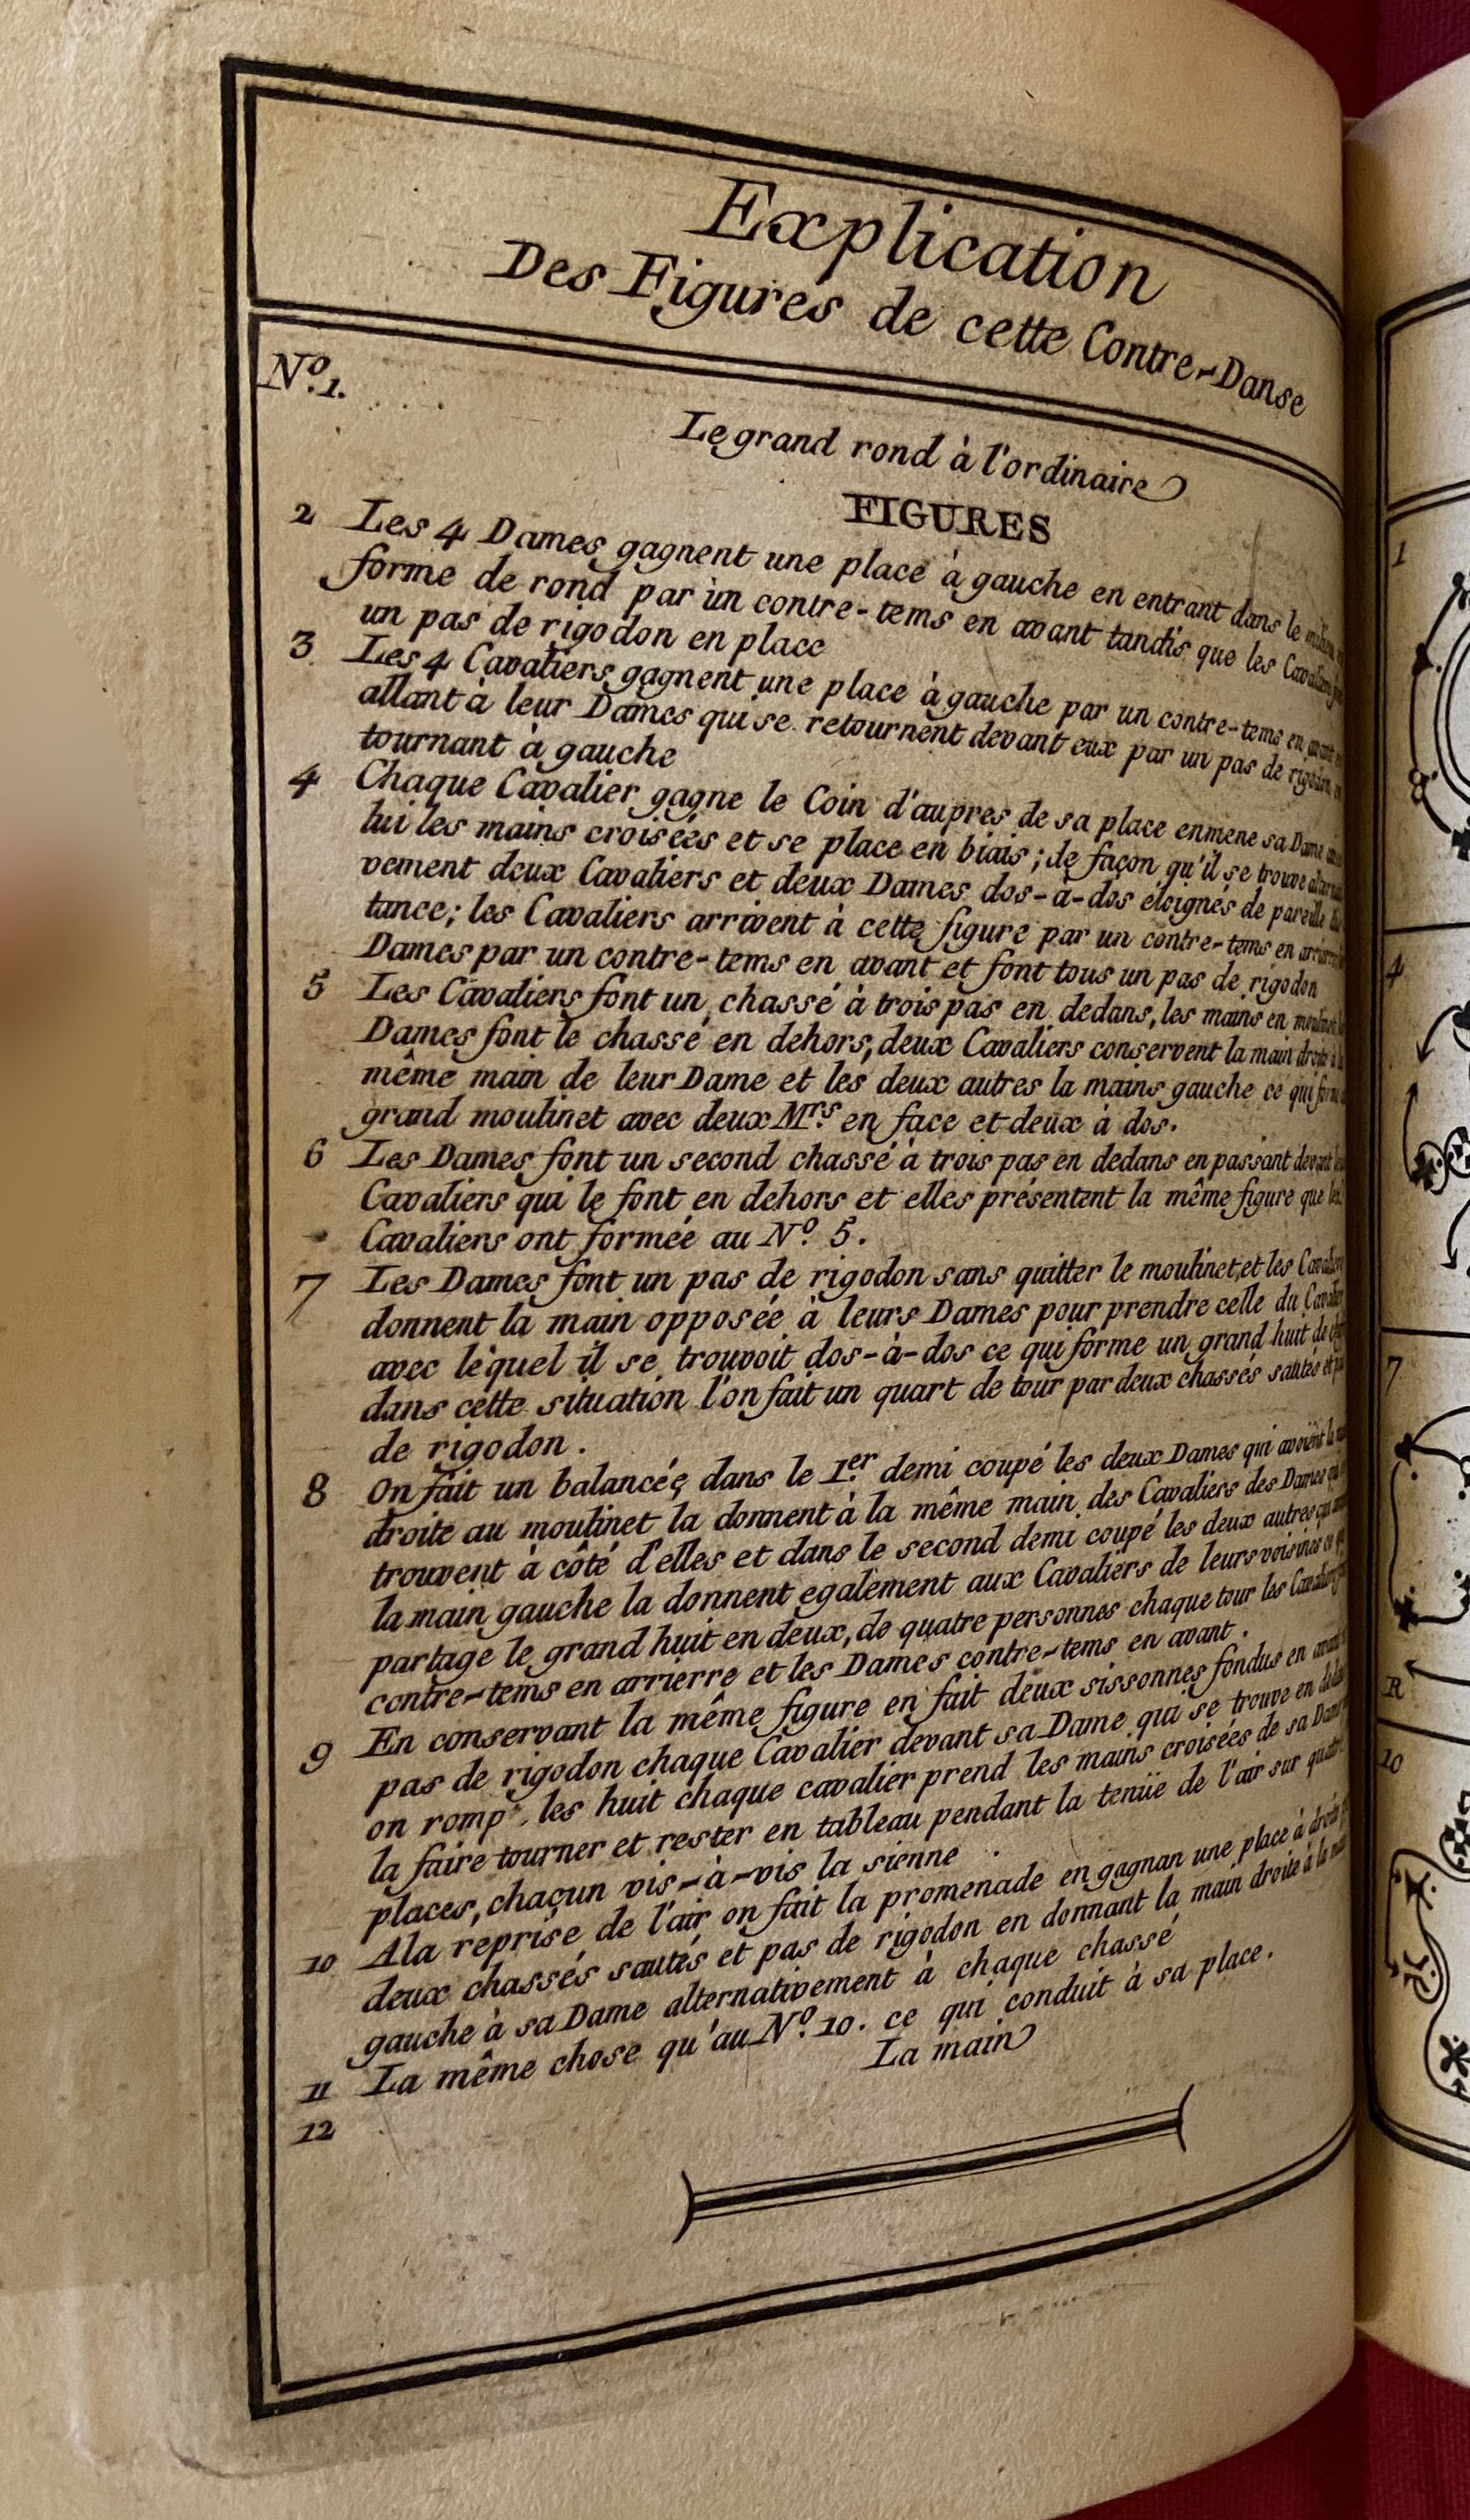 Explication
Des Figures de cette Contre-Danse
Nº. 1.
Le grand rond à l'ordinaire
FIGURES
2 Les 4 Dames gagnent une place à gauche en entrant dans le milieu
forme de rond par un contre-tems en avant tandis que les Cavaliers
un pas de rigodon en place
3 Les 4 Cavaliers gagnent une place à gauche par un contre-tems en avant
allant à leur Dames qui se retournent devant eux par un pas de rigodon
tournant à gauche
4 Chaque Cavalier gagne le Coin d'aupres de sa place enmene sa Dame
lui les mains croisées et se place en biais; de façon qu'il se trouve
vement deux Cavaliers et deux Dames dos-à-dos éloignés de pareille
tance; les Cavaliers arrivent à cette figure par un contre-tems en
Dames par un contre-tems en avant et font tous un pas de rigodon
5 Les Cavaliers font un chassé à trois pas en dedans, les mains en
Dames font le chassé en dehors, deux Cavaliers conservent la main droite à
même main de leur Dame et les deux autres la mains gauche ce qui
grand moulinet avec deux Mrs. en face et deux à dos.
6 Les Dames font un second chassé à trois pas en dedans en passant devant
Cavaliers qui le font en dehors et elles présentent la même figure que
Cavaliers ont formée au Nº. 5.
7 Les Dames font un pas de rigodon sans quitter le moulinet, et les
donnent la main opposée à leurs Dames pour prendre celle du
avec lequel il se trouvoit dos-à-dos ce qui forme un grand huit de
dans cette situation l'on fait un quart de tour par deux chassés sautés et
de rigodon.
8 On fait un balancée, dans le 1er. demi coupé les deux Dames qui avoient la
droite au moulinet la donnent à la même main des Cavaliers des Dames
trouvent à côté d'elles et dans le second demi coupé les deux autres
la main gauche la donnent egalement aux Cavaliers de leurs voisines
partage le grand huit en deux, de quatre personnes chaque tour les
contre-tems en arrierre et les Dames contre-tems en avant.
9 En conservant la même figure en fait deux sissonnes fondus en avant
pas de rigodon chaque Cavalier devant sa Dame qui se trouve en
on romp. les huit chaque cavalier prend les mains croisées de sa
la faire tourner et rester en tableau pendant la tenüe de l'air sur
places, chaçun vis-à-vis la sienne
10 A la reprise de l'air on fait la promenade en gagnan une place à droite
deux chassés sautés et pas de rigodon en donnant la main droite à la
gauche à sa Dame alternativement à chaque chassé
11 La même chose qu'au Nº. 10. ce qui conduit à sa place.
12 La main
1
4
7
R
10